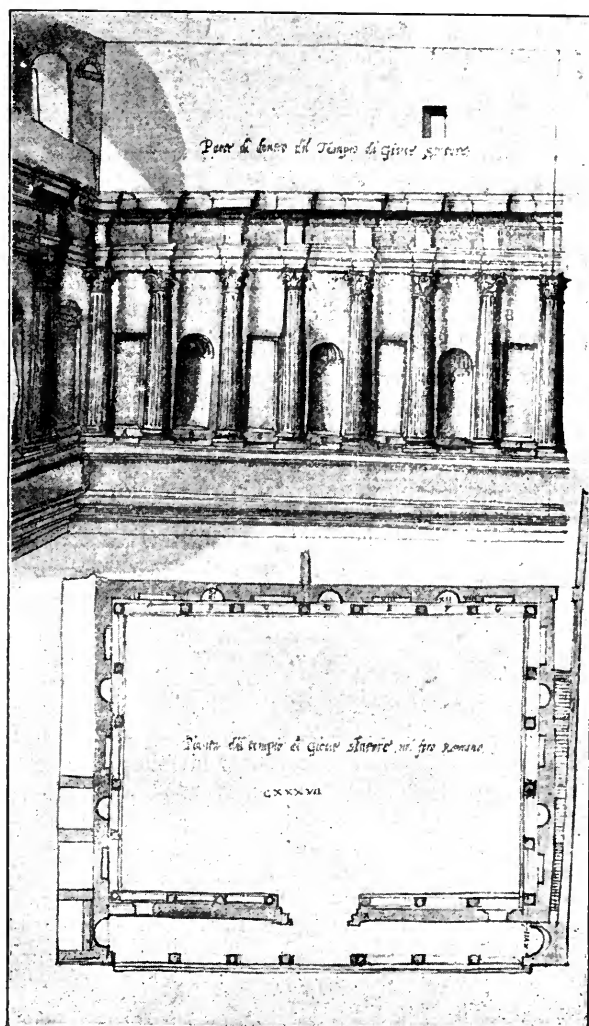 Parte di dentro del Tempio di Giove Statore
Pianta del tempio di Giove Statore nel foro Romano
CXXXVII
XII
XVII